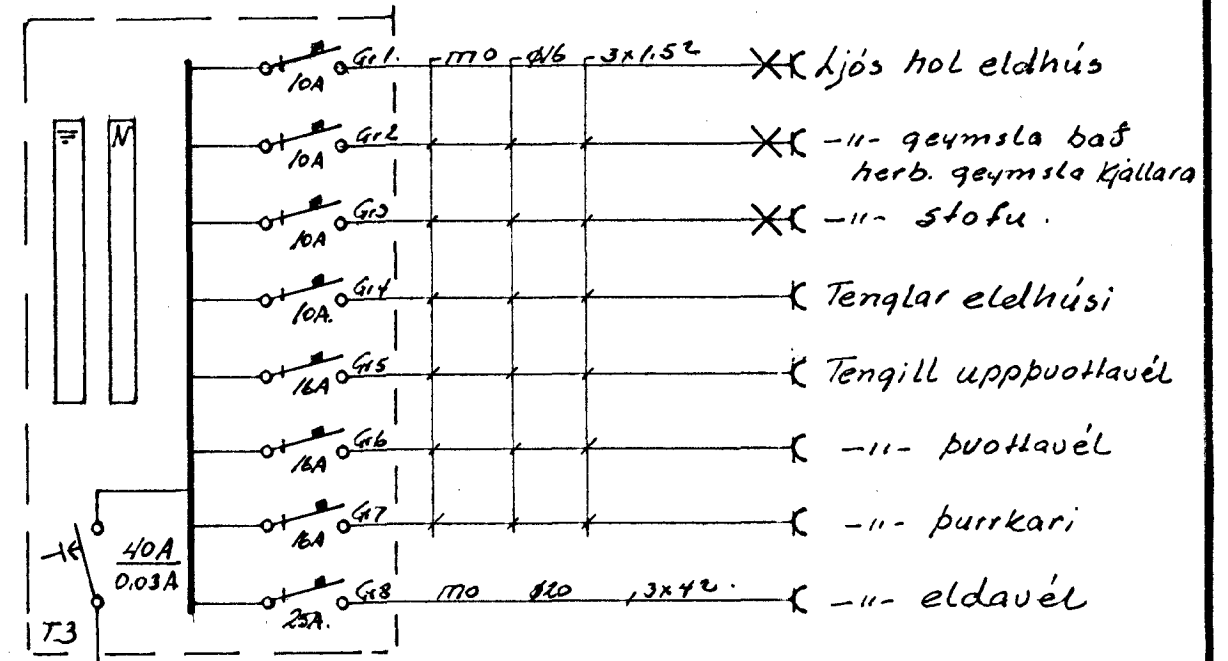 Gr1. mo ø16 3x1.5² Ljós hol eldhús
10A
N
Gr2 -"- geymsla bað
10A herb. geymsla kjallara
Gr3 -"- stofu.
10A
Gr4 Tenglar eldhúsi
10A.
Gr5 Tengill uppþvottavél
16A
Gr6 -"- þvottavél
16A
Gr7 -"- þurrkari
16A
40A
0.03A
Gr8 mo ø20 3x4². -"- eldavél
25A.
T3